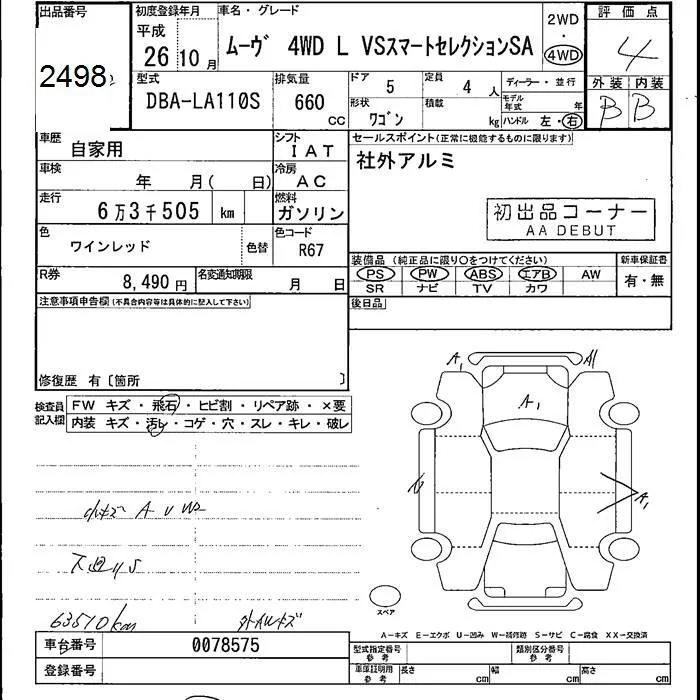 出品番号
2498
初度登録年月
平成
26 10 月
車名・グレード
ムーヴ 4WD L VSスマートセレクションSA
2WD
・
4WD
評価点
4
外装 内装
B B
型式
DBA-LA110S
排気量
660
CC
ドア
5
定員
4 人
ディーラー・並行
形状
ワゴン
積載
kg
モデル年式 年
ハンドル 左・右
車歴
自家用
シフト
IAT
車検
年 月( 日)
冷房
AC
走行
6万3千505 km
燃料
ガソリン
色
ワインレッド
色替
色コード
R67
R券
8,490円
名変通知期限
月 日
セールスポイント(正常に機能するものに限ります)
社外アルミ
初出品コーナー
AA DEBUT
装備品 (純正品に限り○をつけてください)
PS PW ABS エアB AW
SR ナビ TV カワ
新車保証書
有・無
後日品
注意事項申告欄(不具合内容等は具体的に記入して下さい)
修復歴 有〔箇所 〕
検査員記入欄
FW キズ・飛石・ヒビ割・リペア跡・×要
内装 キズ・汚レ・コゲ・穴・スレ・キレ・破レ
小キズ A U W2
下廻りS
63510km
外アルミキズ
A1
A1
A1
スペア
A-キズ E-エクボ U-凹み W-補修跡 S-サビ C-腐食 XX-交換済
車台番号
0078575
登録番号
型式指定番号
参考
類別区分番号
参考
車庫証明用
参考
長さ cm
幅 cm
高さ cm